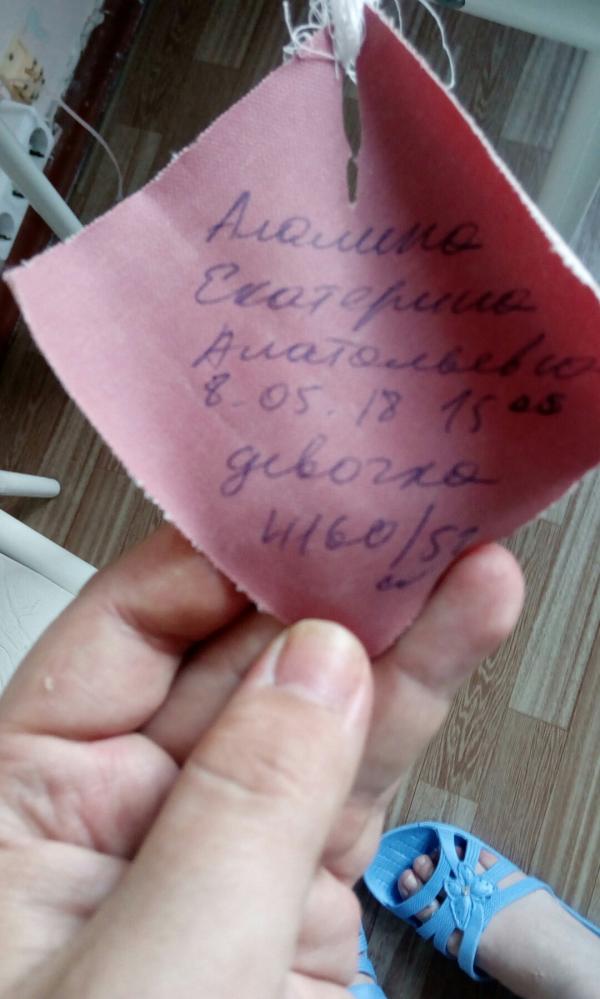 Агалина
Екатерина
Анатольевна
8.05.18 15 05
девочка
4160/52
см